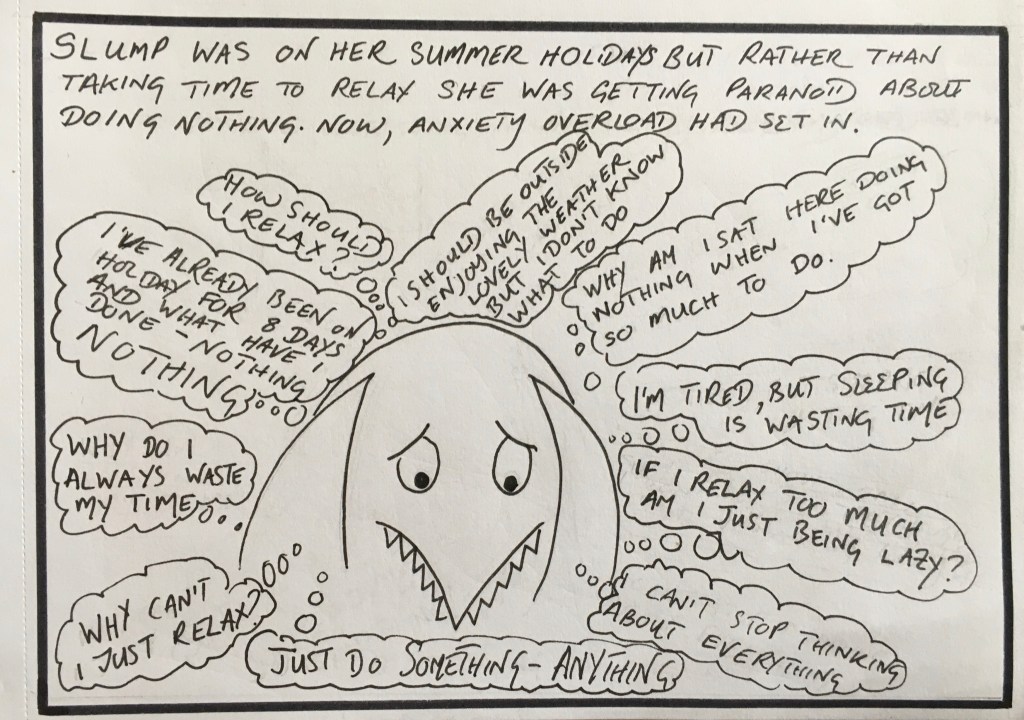 SLUMP WAS ON HER SUMMER HOLIDAYS BUT RATHER THAN
TAKING TIME TO RELAX SHE WAS GETTING PARANOID ABOUT
DOING NOTHING. NOW, ANXIETY OVERLOAD HAD SET IN.
HOW SHOULD
I RELAX?
I SHOULD BE OUTSIDE
ENJOYING THE
LOVELY WEATHER
BUT I DON'T KNOW
WHAT TO DO
WHY AM I SAT HERE DOING
NOTHING WHEN I'VE GOT
SO MUCH TO DO.
I'VE ALREADY BEEN ON
HOLIDAY FOR 8 DAYS
AND WHAT HAVE I
DONE - NOTHING
NOTHING
I'M TIRED, BUT SLEEPING
IS WASTING TIME
WHY DO I
ALWAYS WASTE
MY TIME
IF I RELAX TOO MUCH
AM I JUST BEING LAZY?
WHY CAN'T
I JUST RELAX?
I CAN'T STOP THINKING
ABOUT EVERYTHING
JUST DO SOMETHING - ANYTHING